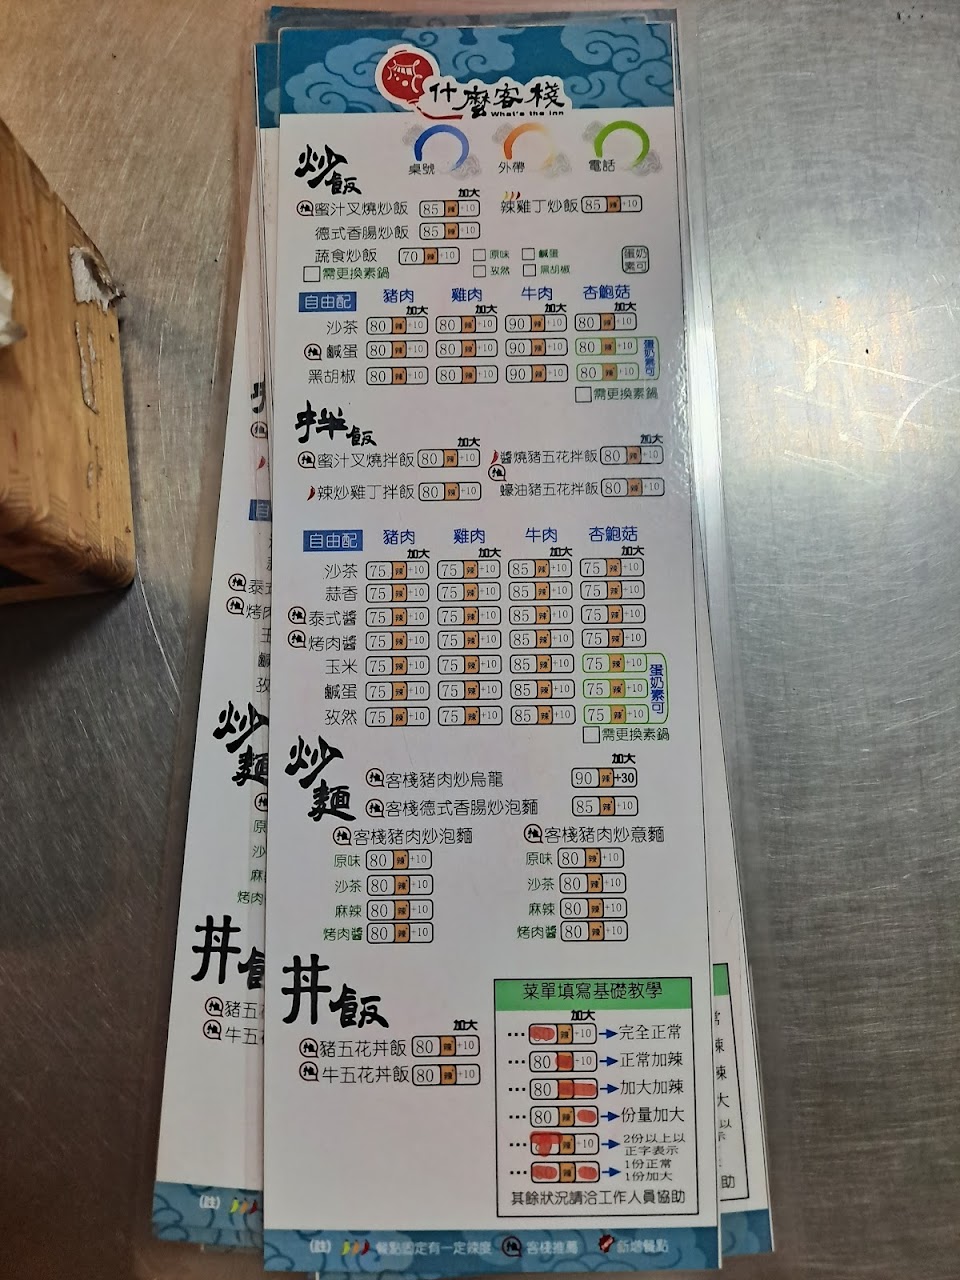 什麼客棧
What's the Inn
桌號 外帶 電話
炒飯
加大
推 蜜汁叉燒炒飯 85 辣 +10 辣雞丁炒飯 85 辣 +10
德式香腸炒飯 85 辣 +10
蔬食炒飯 70 辣 +10 原味 鹹蛋 蛋奶素可
需更換素鍋 孜然 黑胡椒
自由配 豬肉 雞肉 牛肉 杏鮑菇
加大 加大 加大 加大
沙茶 80 辣 +10 80 辣 +10 90 辣 +10 80 辣 +10
推 鹹蛋 80 辣 +10 80 辣 +10 90 辣 +10 80 辣 +10 蛋奶素可
黑胡椒 80 辣 +10 80 辣 +10 90 辣 +10 80 辣 +10
需更換素鍋
拌飯
加大 加大
推 蜜汁叉燒拌飯 80 辣 +10 醬燒豬五花拌飯 80 辣 +10
辣炒雞丁拌飯 80 辣 +10 推 蠔油豬五花拌飯 80 辣 +10
自由配 豬肉 雞肉 牛肉 杏鮑菇
加大 加大 加大 加大
沙茶 75 辣 +10 75 辣 +10 85 辣 +10 75 辣 +10
蒜香 75 辣 +10 75 辣 +10 85 辣 +10 75 辣 +10
推 泰式醬 75 辣 +10 75 辣 +10 85 辣 +10 75 辣 +10
推 烤肉醬 75 辣 +10 75 辣 +10 85 辣 +10 75 辣 +10
玉米 75 辣 +10 75 辣 +10 85 辣 +10 75 辣 +10 蛋奶素可
鹹蛋 75 辣 +10 75 辣 +10 85 辣 +10 75 辣 +10
孜然 75 辣 +10 75 辣 +10 85 辣 +10 75 辣 +10
需更換素鍋
炒麵
加大
推 客棧豬肉炒烏龍 90 辣 +30
推 客棧德式香腸炒泡麵 85 辣 +10
推 客棧豬肉炒泡麵 推 客棧豬肉炒意麵
原味 80 辣 +10 原味 80 辣 +10
沙茶 80 辣 +10 沙茶 80 辣 +10
麻辣 80 辣 +10 麻辣 80 辣 +10
烤肉醬 80 辣 +10 烤肉醬 80 辣 +10
丼飯
加大
推 豬五花丼飯 80 辣 +10
推 牛五花丼飯 80 辣 +10
菜單填寫基礎教學
加大
… 80 辣 +10 完全正常
… 80 +10 正常加辣
… 80 加大加辣
… 80 辣 份量加大
… 辣 +10 2份以上以正字表示
… 80 辣 1份正常1份加大
其餘狀況請洽工作人員協助
(註) 餐點固定有一定辣度 推 客棧推薦 新增餐點
推
推 泰式
推 烤肉
玉
鹹
孜
炒麵
推
原
沙
麻
烤肉
丼
推 豬五
推 牛五
(註)
助